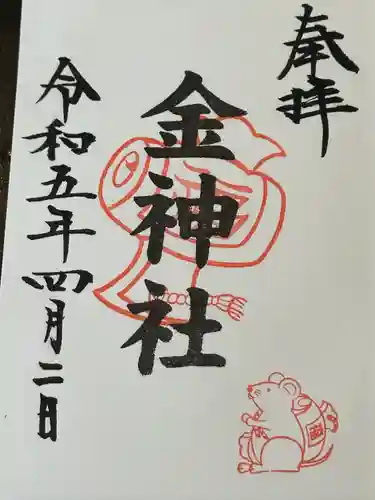 奉拝
金神社
令和五年四月二日